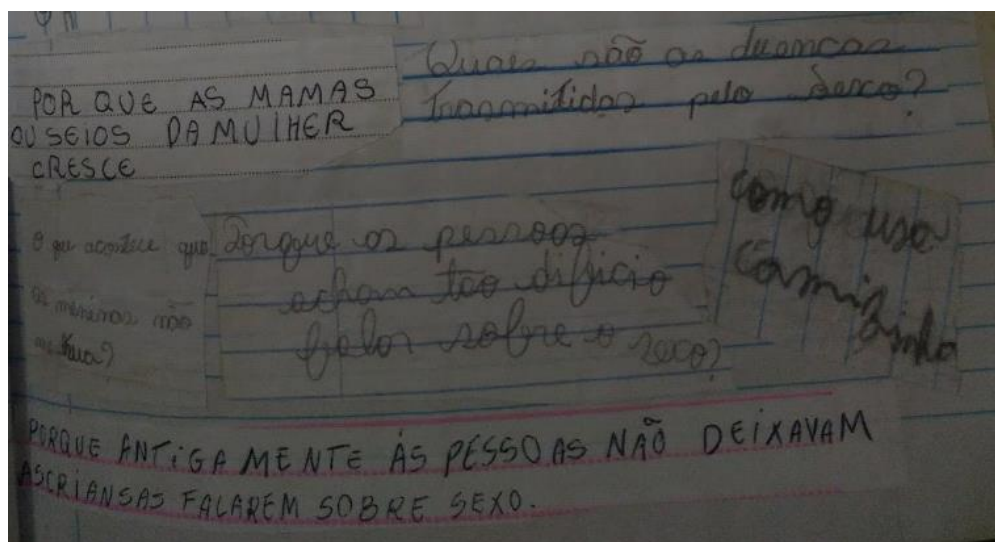 POR QUE AS MAMAS
OU SEIOS DA MULHER
CRESCE
Quais são as duencas
Trasmitidas pelo sexco?
O que acontece que
as meninas não
Porque as pessoas
acham tão dificio
falar sobre o sexo?
como usa
camizinha
PORQUE ANTIGAMENTE ÀS PESSOAS NÃO DEIXAVAM
ASCRIANSAS FALAREM SOBRE SEXO.